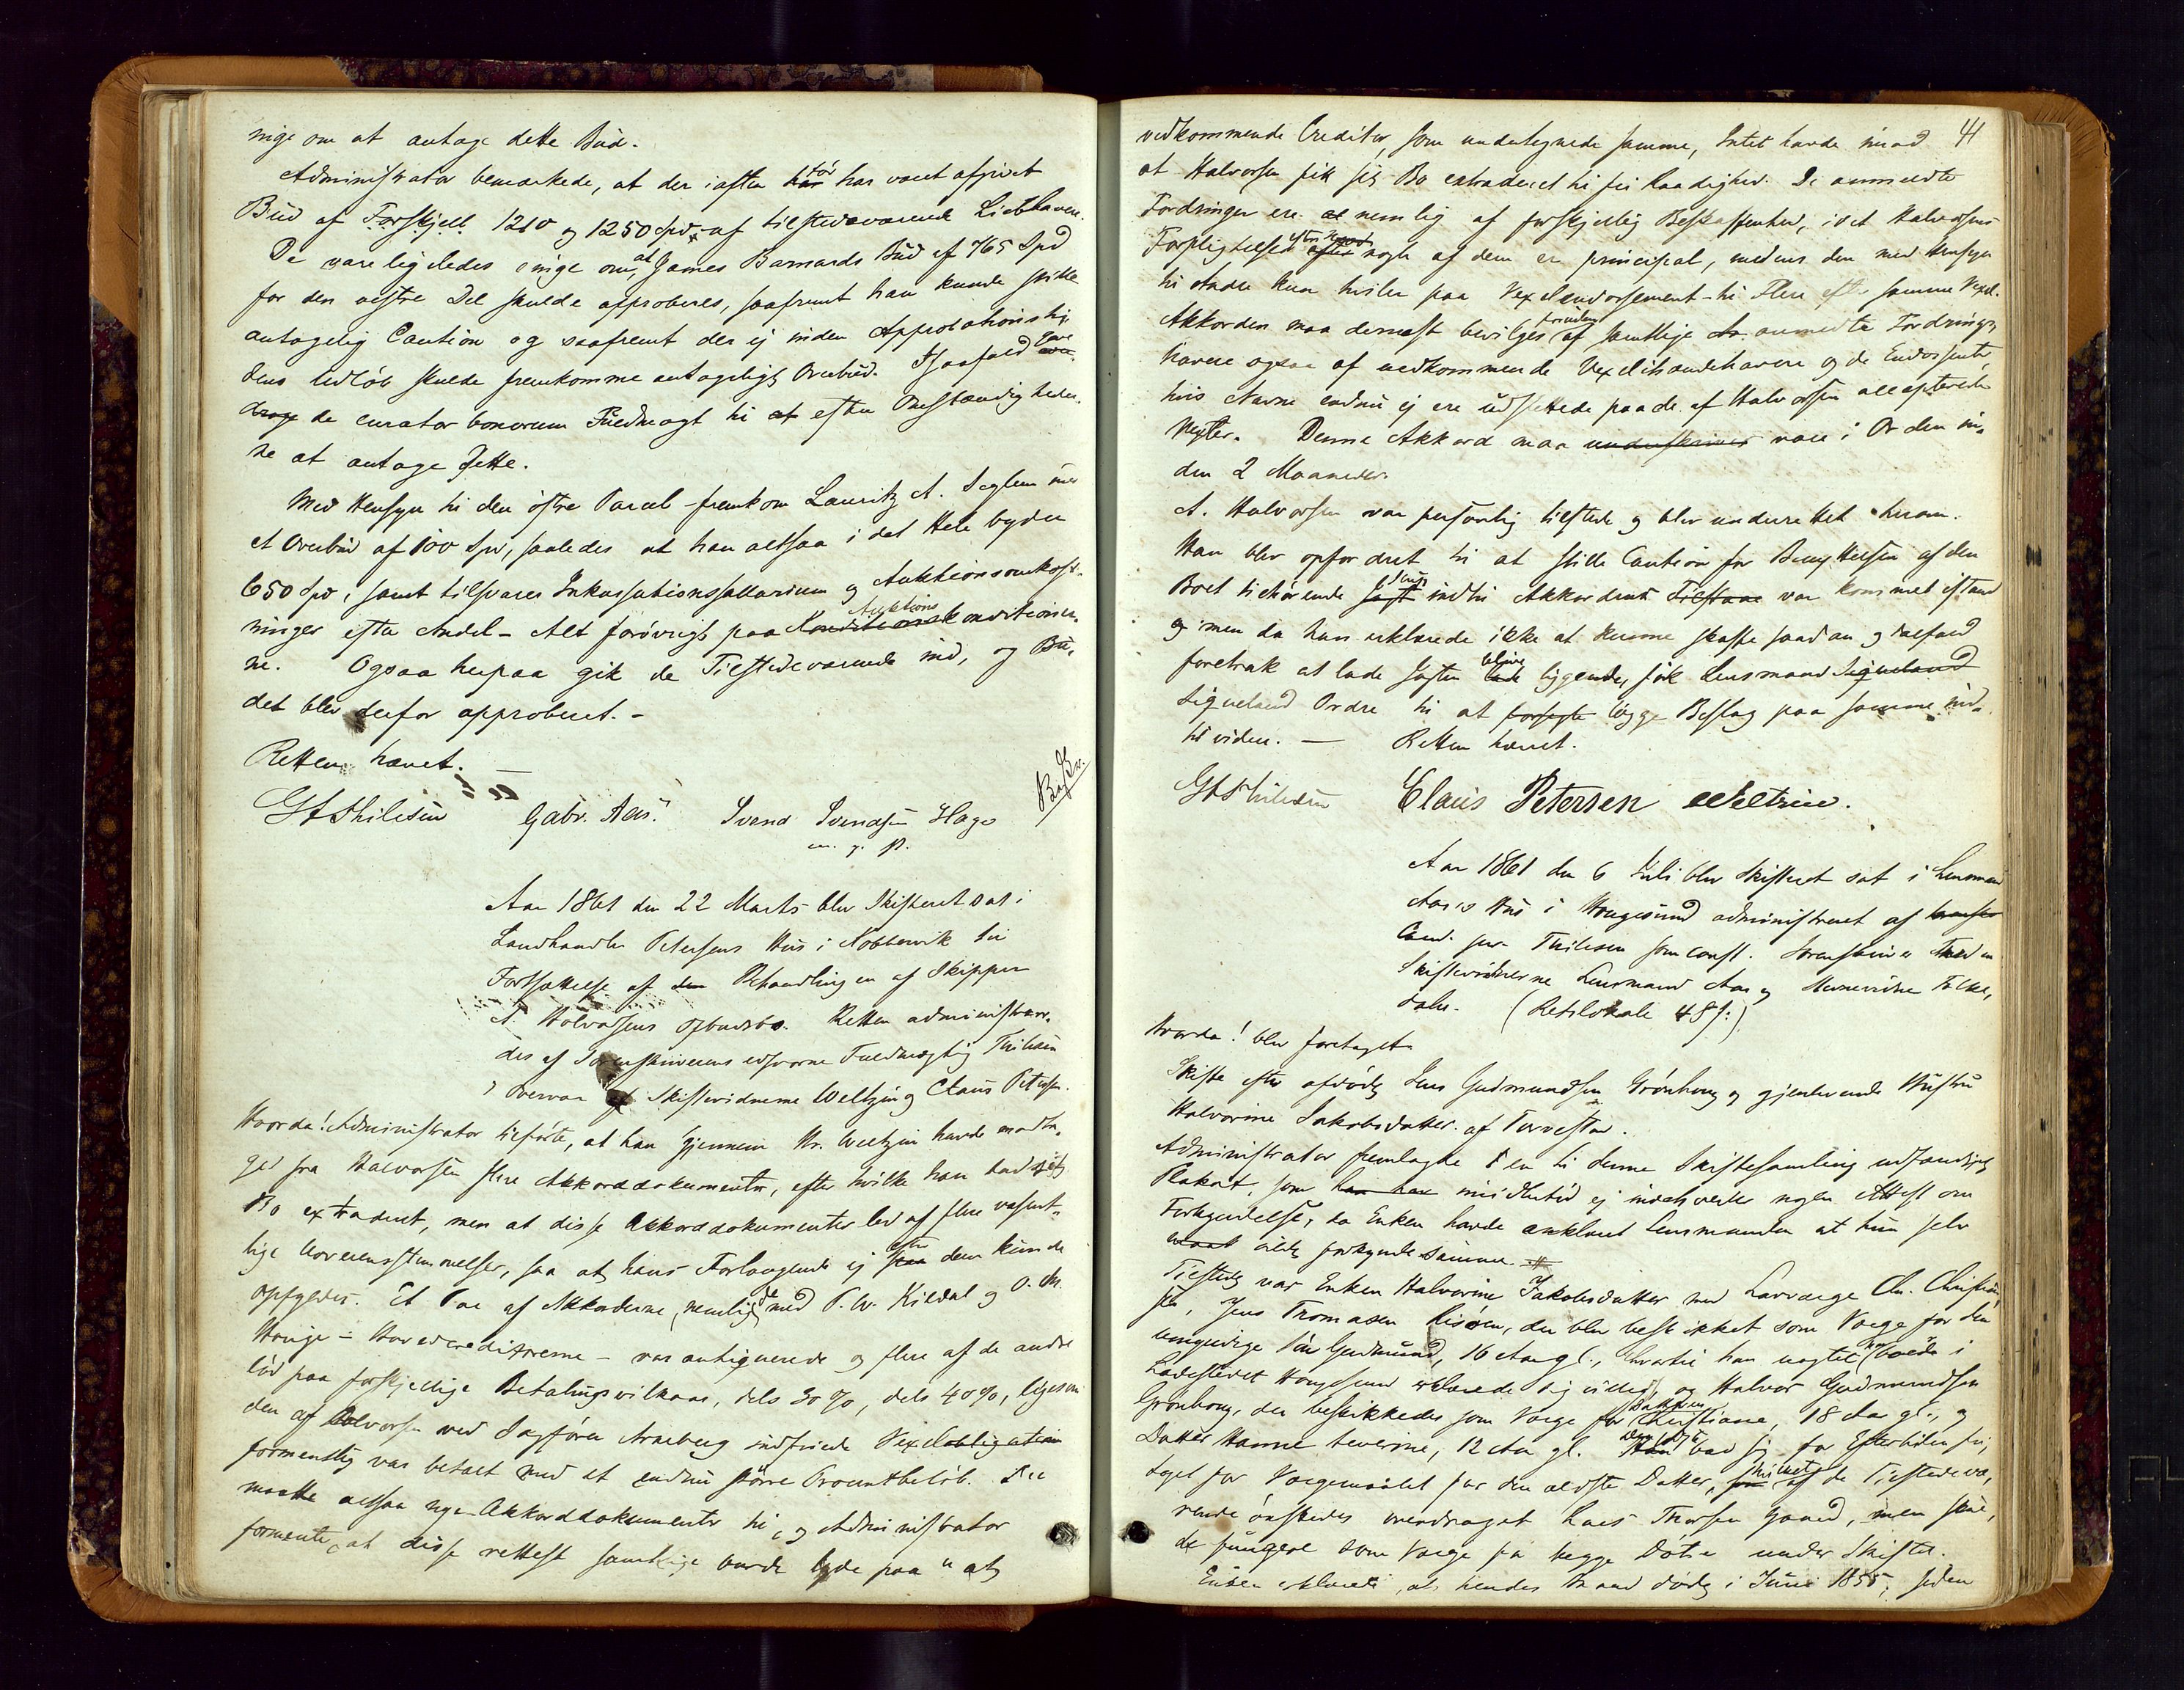 nige om at antage dette Bud.
Administrator bemærkede, at der iaften før har været afgivet
Bud af Forskjell 1210 og 1250 Spd. af tilstedeværende Liebhavere.
De vare ligeledes enige om, at James Barnards Bud af 765 Spd
for den vestre Del skulde approberes, saafremt han kunde stille
antagelig Caution og saafremt der ej inden Approbationsti-
dens Udløb skulde fremkomme antageligt Overbud. I saafald
de curator bonorum Fuldmagt til at efter Omstændigheder-
ne at antage dette.
Med Hensyn til den østre Parcel fremkom Lauritz A. Seglem med
et Overbud af 100 Spd, saaledes at han altsaa i det Hele byder
650 Spd, samt tilsvarer Inkassationssallarium og Auktionsomkost-
ninger efter Andel - Alt forøvrigt paa Auktionskonditioner-
ne. Ogsaa herpaa gik de Tilstedeværende ind, og Bu-
det blev derfor approberet. -
Retten hævet. -
G Thilesen Gabr. Aas. Svend Svendsen Hage
m. f. P.
Aar 1861 den 22 Marts blev Skifteret sat i
Landhandler Petersens Hus i Kobbervik til
Fortsættelse af den Behandlingen af Skipper
A. Halvorsens Opbudsbo. Retten administrere-
des af Sorenskriverens edsvorne Fuldmægtig Thilesen
i Overvær af Skiftevidnerne Weltzin og Claus Petersen.
Hvorda! Administrator tilførte, at han gjennem Hr. Weltzin havde modta-
get fra Halvorsen flere Akkorddokumenter, efter hvilke han bad sit
Bo extraderet, men at disse Akkorddokumenter led af flere væsent-
lige Uoverensstemmelser, saa at hans Forlangende ej efter dem kunde
opfyldes. Et Par af Akkorderne, nemlig de med P. W. Kildal og O. M.
Hauge - Hovedcreditorerne - var antiqverede og flere af de andre
lød paa forskjellige Betalingsvilkaar, dels 30 %, dels 40 %, ligesom
den af Halvorsen ved Sagfører Arneberg indfriede Vexelobligation
formentlig var betalt med et endnu større Procentbeløb. Der
maatte altsaa nye Akkorddokumenter til, og Administrator
formente, at disse rettest samtlige burde lyde paa "at
41
vedkommende Creditor, som undertegnede samme, Intet havde imod
at Halvorsen fik sit Bo extraderet til fri Raadighed. De anmeldte
Fordringer ere nemlig af forskjellig Beskaffenhed, idet Halvorsens
Forpligtelser efter nogle af dem er principal, medens den med Hensyn
til Andre kun hviler paa Vexelendorsement - til Flere efter samme Vexel.
Akkorden maa dernæst bevilges foruden af samtlige anmeldte Fordrings-
havere ogsaa af vedkommende Vexelihændehavere og de Endossenter,
hvis Navne endnu ej ere udslettede paa de af Halvorsen accepterede
Vexler. Denne Akkord maa underskrives være i Orden in-
den 2 Maaneder.
A. Halvorsen var personlig tilstede og blev underrettet herom.
Han blev opfordret til at stille Caution for Benyttelsen af den
Boet tilhørende indtil Akkorden var kommet istand
og men da han erklærede ikke at kunne skaffe saadan og ialfald
foretrak at lade Jagten blive liggende, fik Lensmand Sigveland
Sigveland Ordre til at forsegle lægge Beslag paa samme ind-
til videre. - Retten hævet.
G Thilesen Claus Petersen Weltzin.
Aar 1861 den 6 Juli blev Skifteret sat i Lensmand
Aas's Hus i Haugesund administreret af
Cand. jur. Thilesen som const. Sorenskriver med
Skiftevidnerne Lensmand Aas og Stevnevidne
(Retslokale 48 f:)
Hvorda! blev foretaget
Skifte efter afdøde Jens Gudmundsen Grønhoug og gjenlevende Hustru
Halvorine Jakobsdatter af Torvestad.
Administrator fremlagde en til denne Skiftesamling udfærdiget
Plakat, som imidlertid ej indeholder nogen Attest om
Forkyndelse, da Enken havde erklæret Lensmanden at hun selv
vilde forkynde samme.
Tilstede var Enken Halvorine Jakobsdatter med Laugværge Chr. Christian-
sen, Jens Thomasen Risøen, der blev beskikket som Værge for den
umyndige Søn Gudmund, 16 Aar gl., hvortil han uagtet han boede i
Ladestedet Haugesund erklærede sig villig, og Halvor Gudmundsen
Grønhoug, der beskikkedes som Værge for Datteren Christiane, 18 Aar gl., og
Datter Hanne Severine, 12 Aar gl. bad sig for Eftertiden fri-
taget for Værgemaalet for den ældste Datter, af de Tilstedevæ-
rende ønskedes overdraget Lars Thorsen Gaard, men skul-
de fungere som Værge for begge Døtre under Skiftet.
Enken erklærede, at hendes Mand døde i Juni 1855, siden